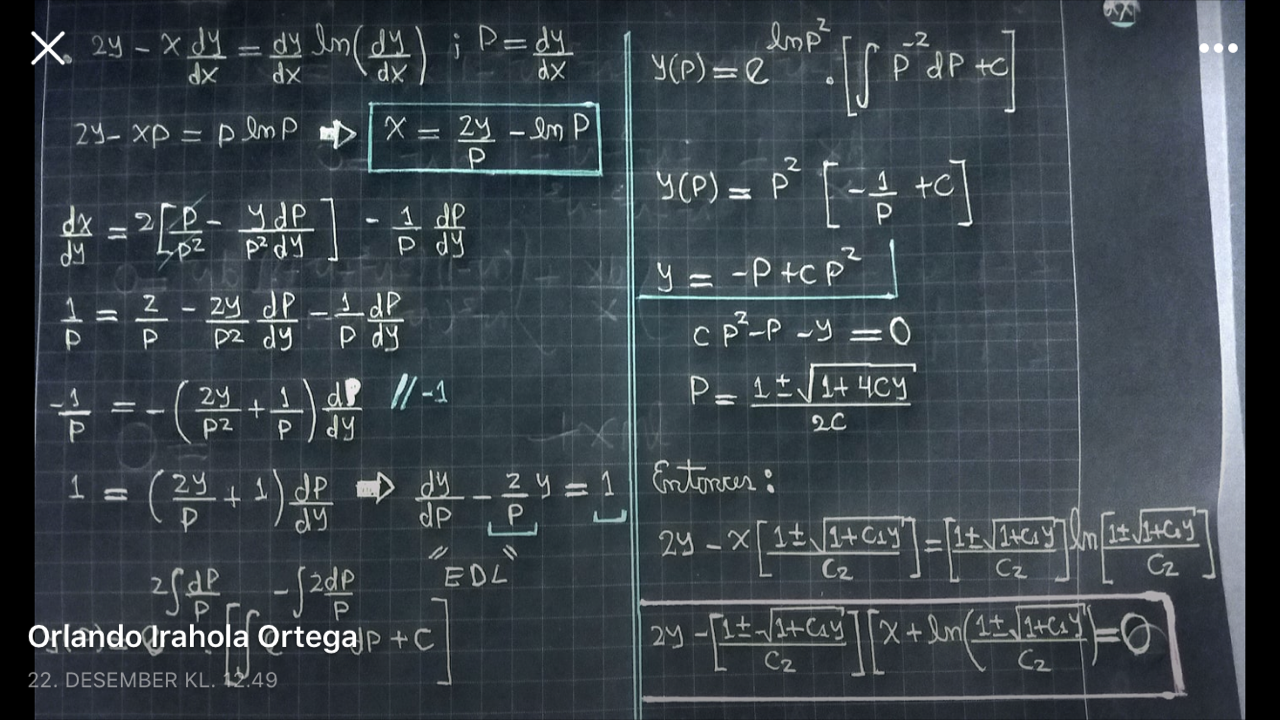 2y - x dy/dx = dy/dx ln(dy/dx) ; P = dy/dx
2y - xp = p lnP ⇒ x = 2y/P - lnP
dx/dy = 2[P/P² - y dP/P² dy] - 1/P dP/dy
1/P = 2/P - 2y/P² dP/dy - 1/P dP/dy
-1/P = -(2y/P² + 1/P) dP/dy // -1
1 = (2y/P + 1) dP/dy ⇒ dy/dP - 2/P y = 1
" EDL "
2∫dP/P -∫2dP/P
[∫ dP + C]
y(P) = e^lnP² · [∫ P⁻² dP + C]
y(P) = P² [-1/P + C]
y = -P + CP²
CP² - P - y = 0
P = 1 ± √1 + 4Cy / 2C
Entonces:
2y - x[1 ± √1 + C₁y / C₂] = [1 ± √1 + C₁y / C₂] ln[1 ± √1 + C₁y / C₂]
2y - [1 ± √1 + C₁y / C₂][x + ln(1 ± √1 + C₁y / C₂) = 0
Orlando Irahola Ortega
22. DESEMBER KL. 12.49